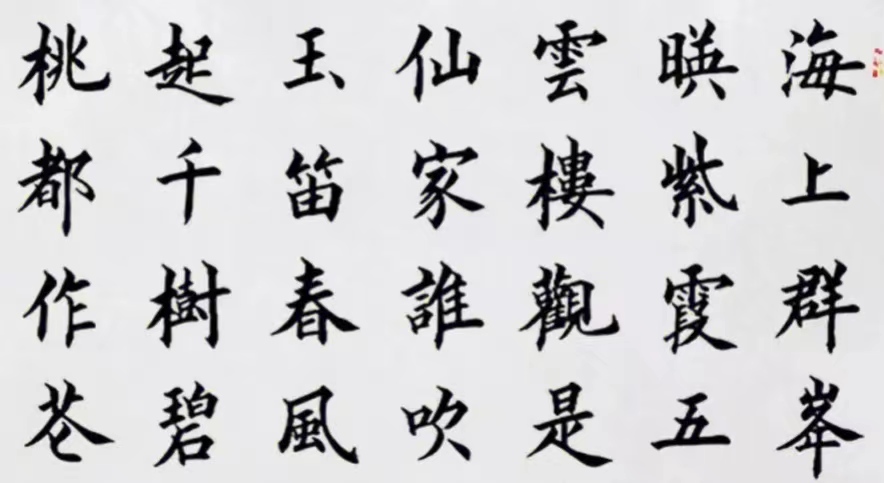 海上群峯
暎紫霞五
雲樓觀是
仙家誰吹
玉笛春風
起千樹碧
桃都作花